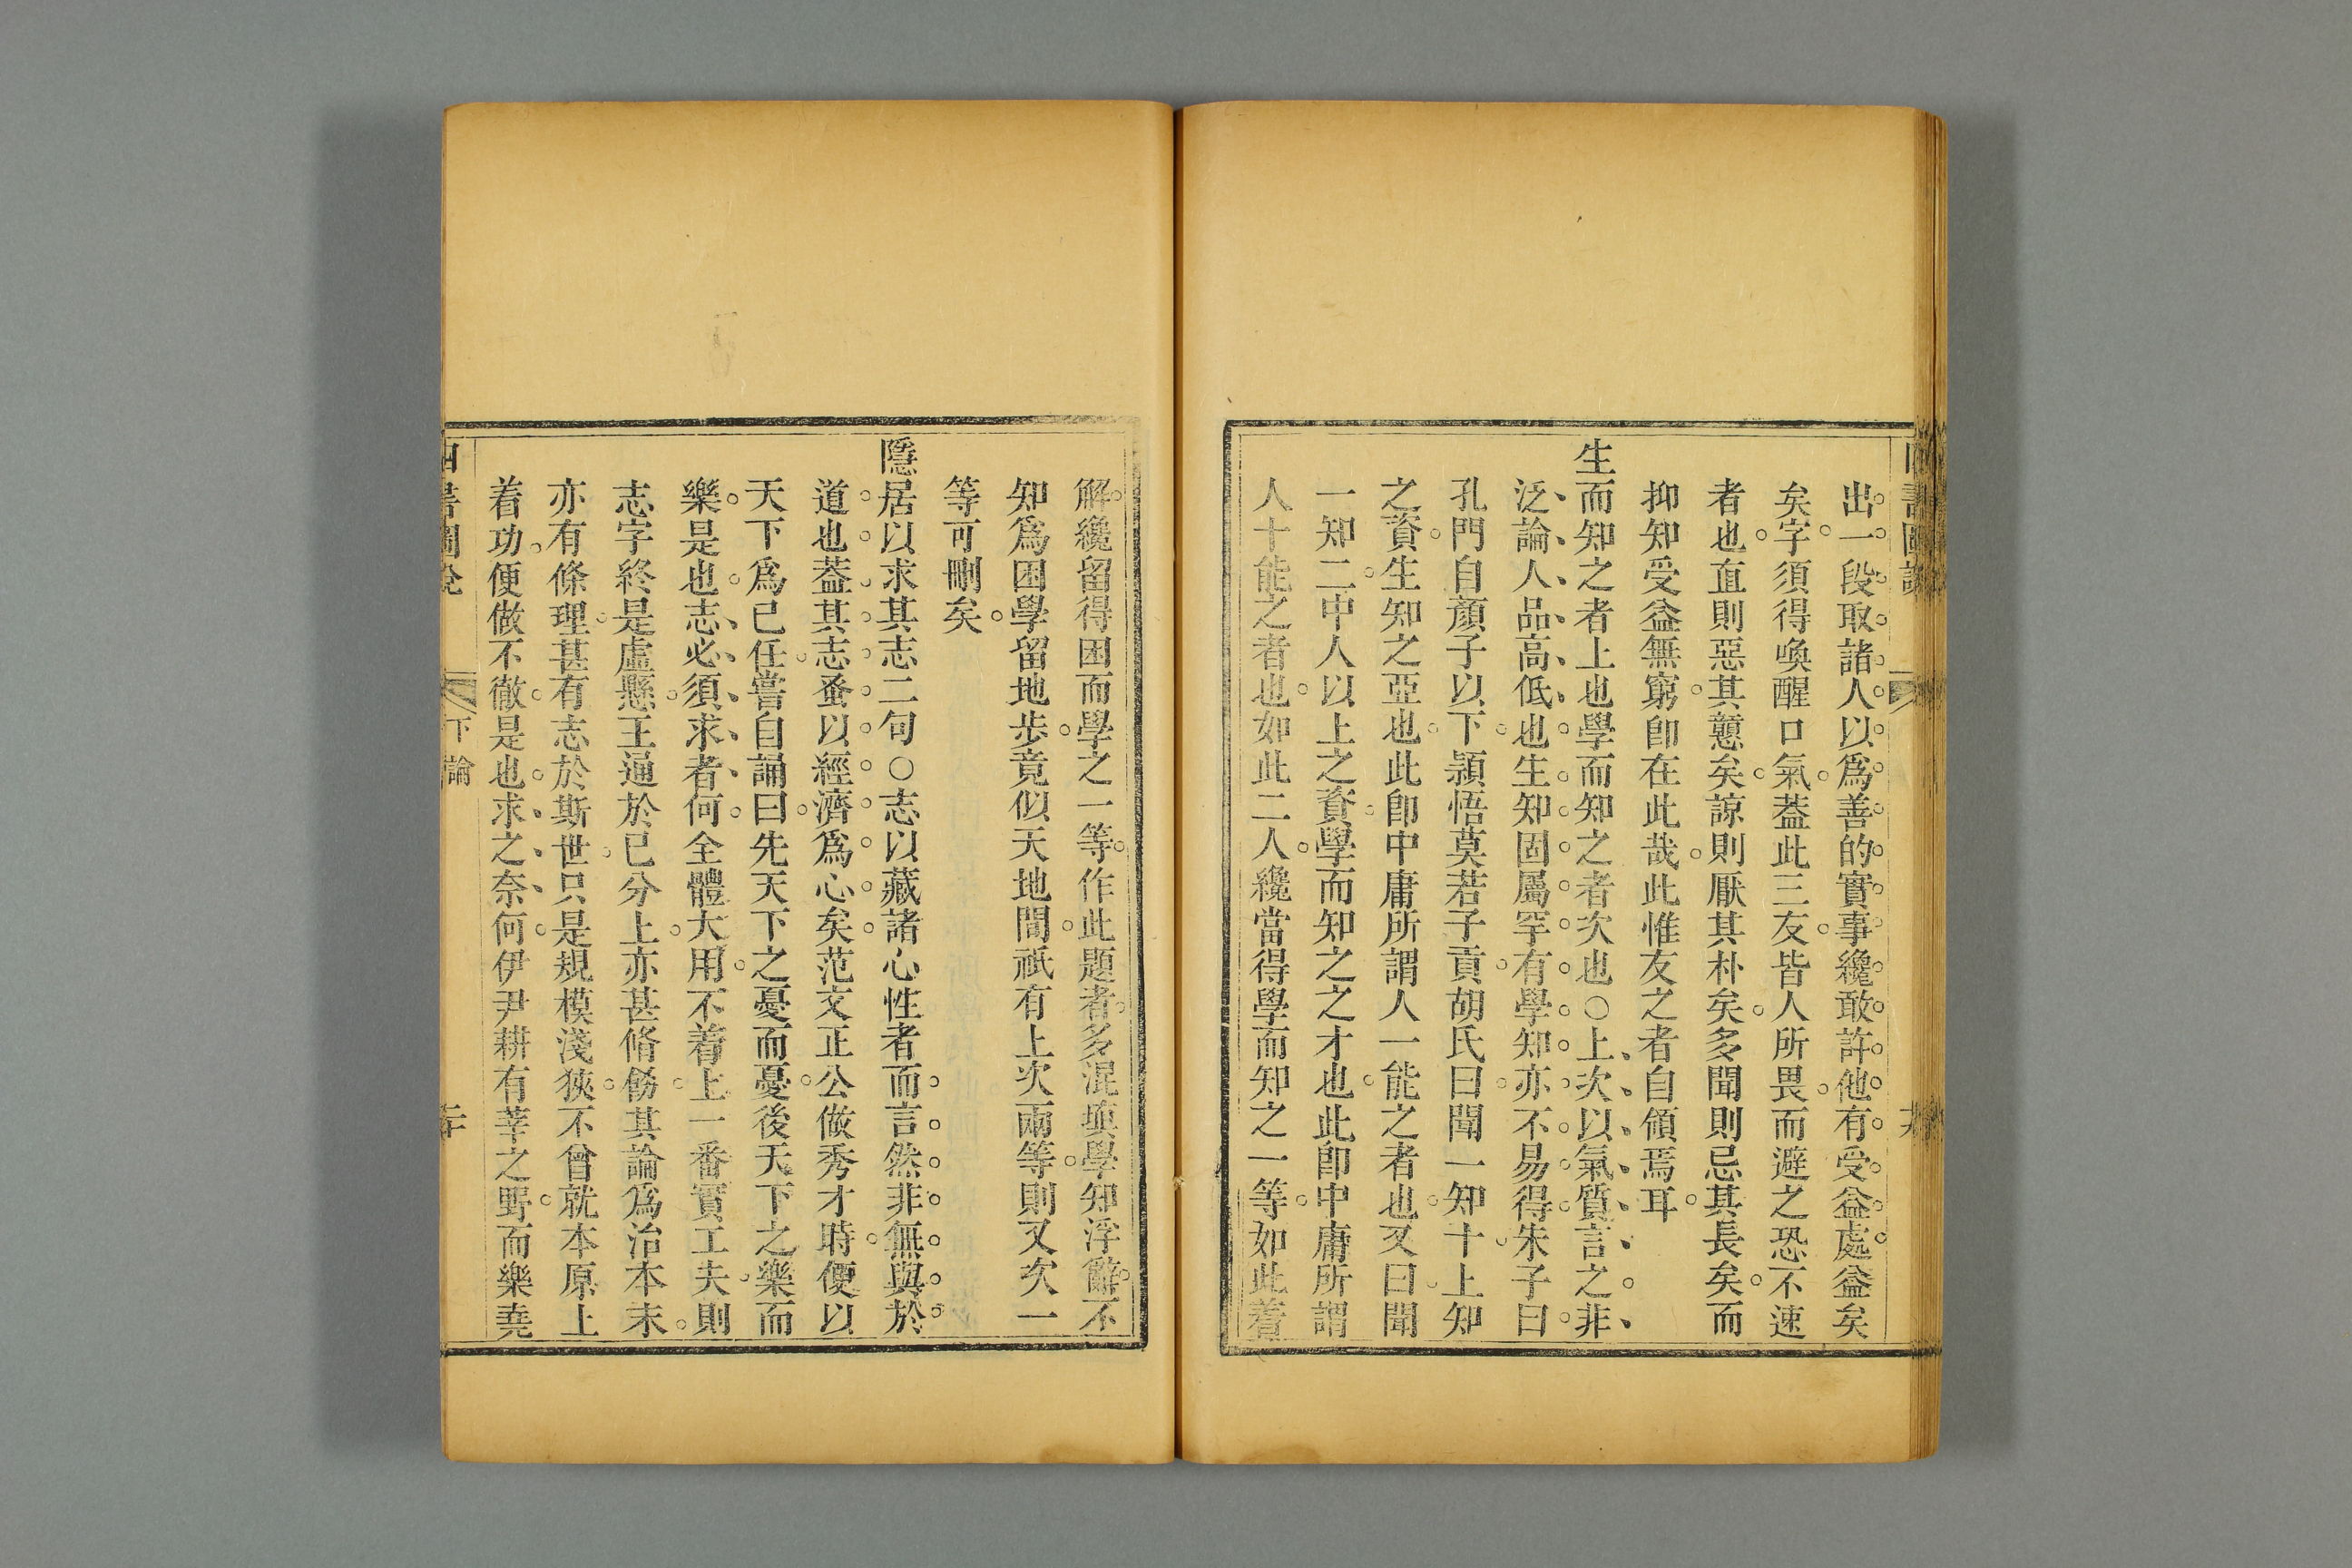 出一段取諸人以爲善的實事纔敢許他有受益處益矣
矣字須得喚醒口氣葢此三友皆人所畏而避之恐不速
者也直則惡其戇矣諒則厭其朴矣多聞則忌其長矣而
抑知受益無窮卽在此哉此惟友之者自領焉耳
生而知之者上也學而知之者次也○上次以氣質言之非
泛論人品高低也生知固屬罕有學知亦不易得朱子曰
孔門自顏子以下頴悟莫若子貢胡氏曰聞一知十上知
之資生知之亞也此卽中庸所謂人一能之者也又曰聞
一知二中人以上之資學而知之之才也此卽中庸所謂
人十能之者也如此二人纔當得學而知之一等如此着
解纔留得困而學之一等作此題者多混塡學知浮辭不
知爲困學留地步竟似天地間祇有上次兩等則又次一
等可刪矣
隱居以求其志二句○志以藏諸心性者而言然非無與於
道也葢其志蚤以經濟爲心矣范文正公做秀才時便以
天下爲己任嘗自誦曰先天下之憂而憂後天下之樂而
樂是也志必須求者何全體大用不着上一番實工夫則
志字終是虛懸王通於已分上亦甚脩飭其論爲治本末
亦有條理甚有志於斯世只是規模淺狹不曾就本原上
着功便做不徹是也求之奈何伊尹耕有莘之野而樂堯
下論